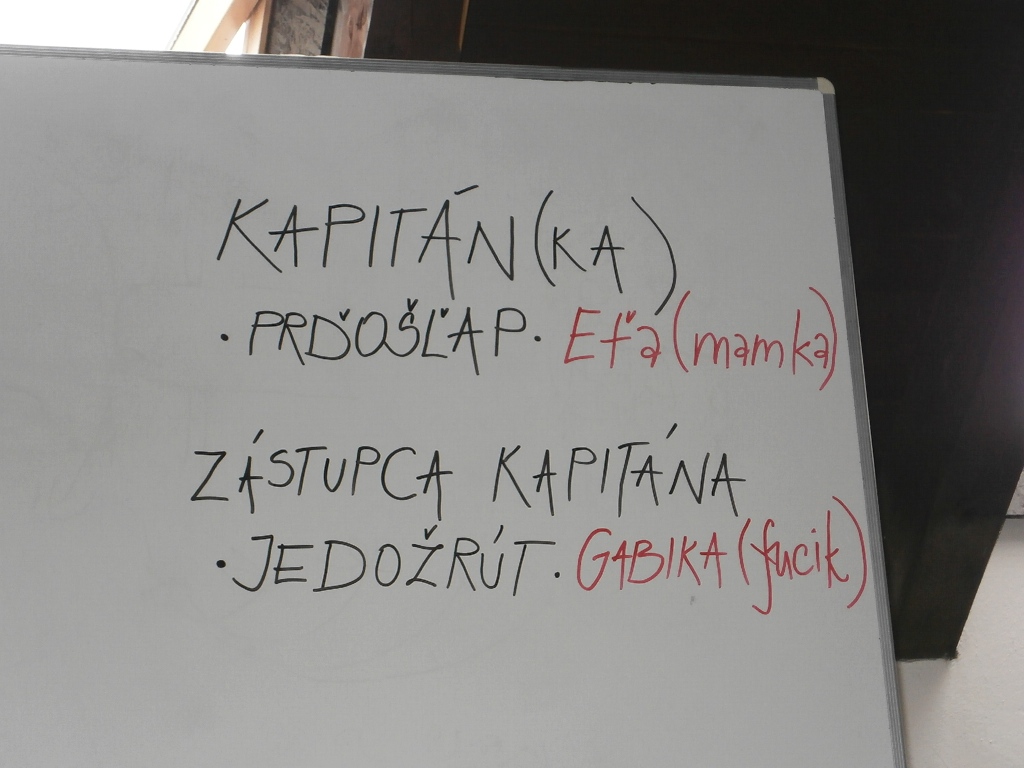 KAPITÁN(KA)
· PRĎOŠĽAP · Eťa (mamka)
ZÁSTUPCA KAPITÁNA
· JEDOŽRÚT · GABIKA (fucik)